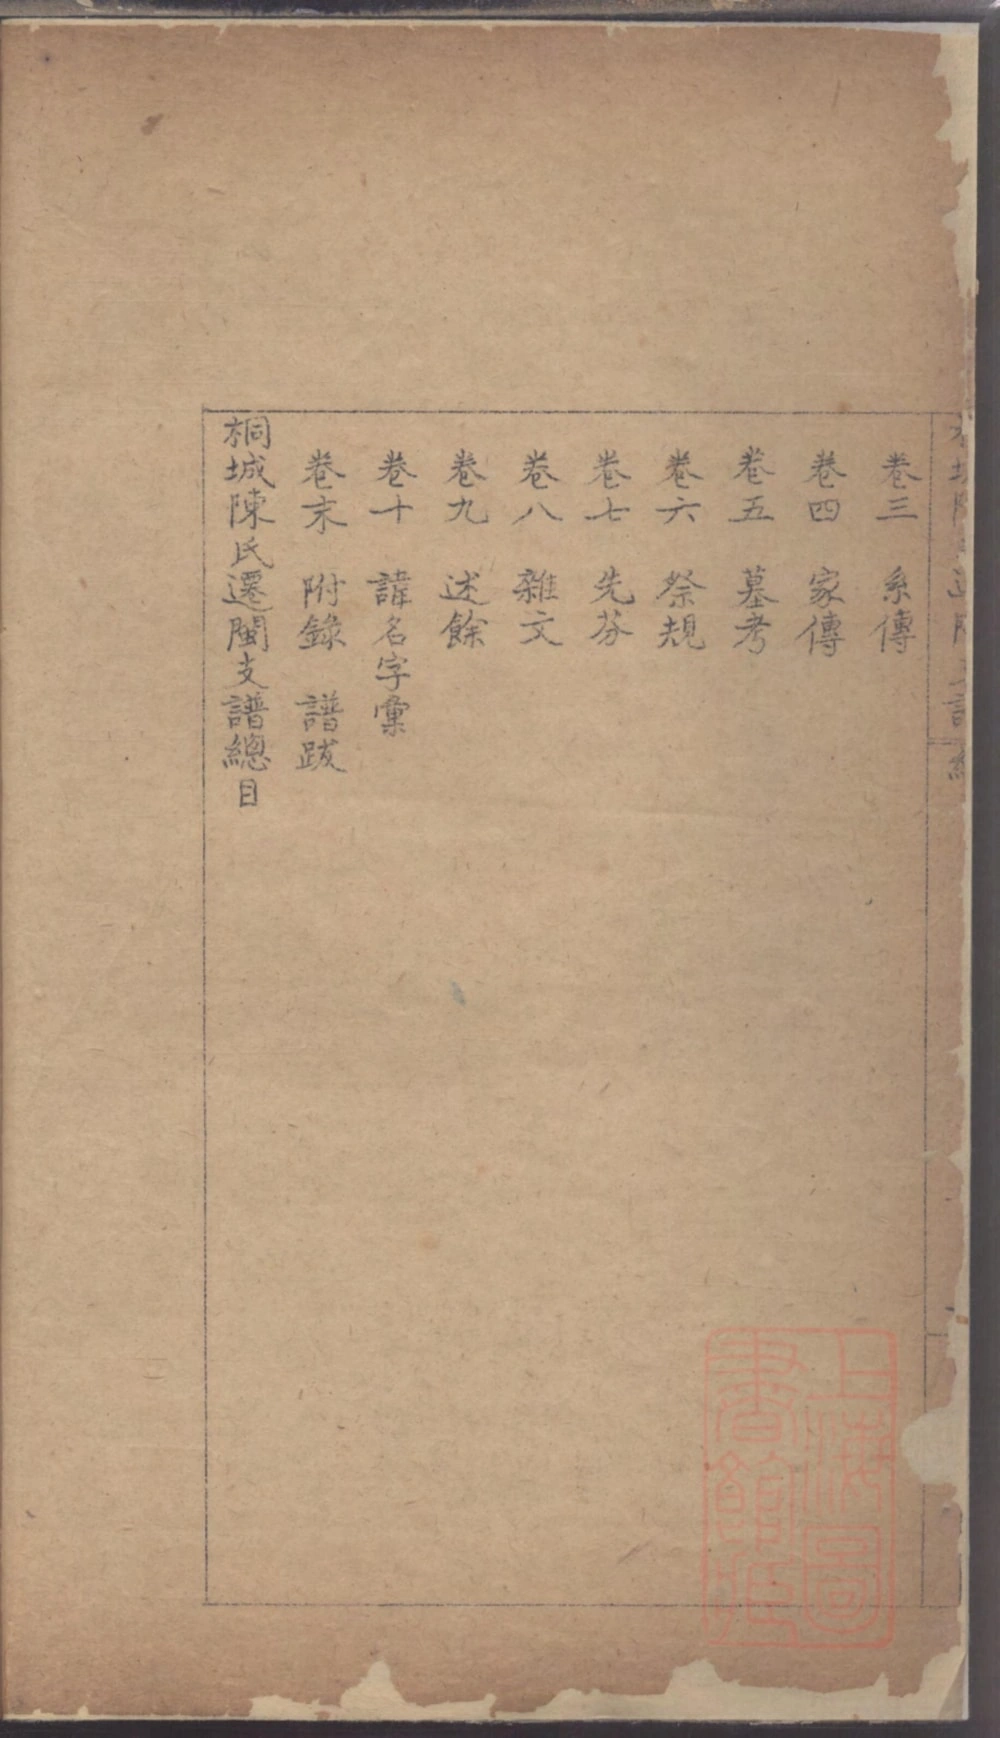 卷三　系傳
卷四　家傳
卷五　墓考
卷六　祭規
卷七　先芬
卷八　雜文
卷九　述餘
卷十　諱名字彙
卷末　附錄　譜跋
桐城陳氏遷閩支譜總目
上海圖書館藏